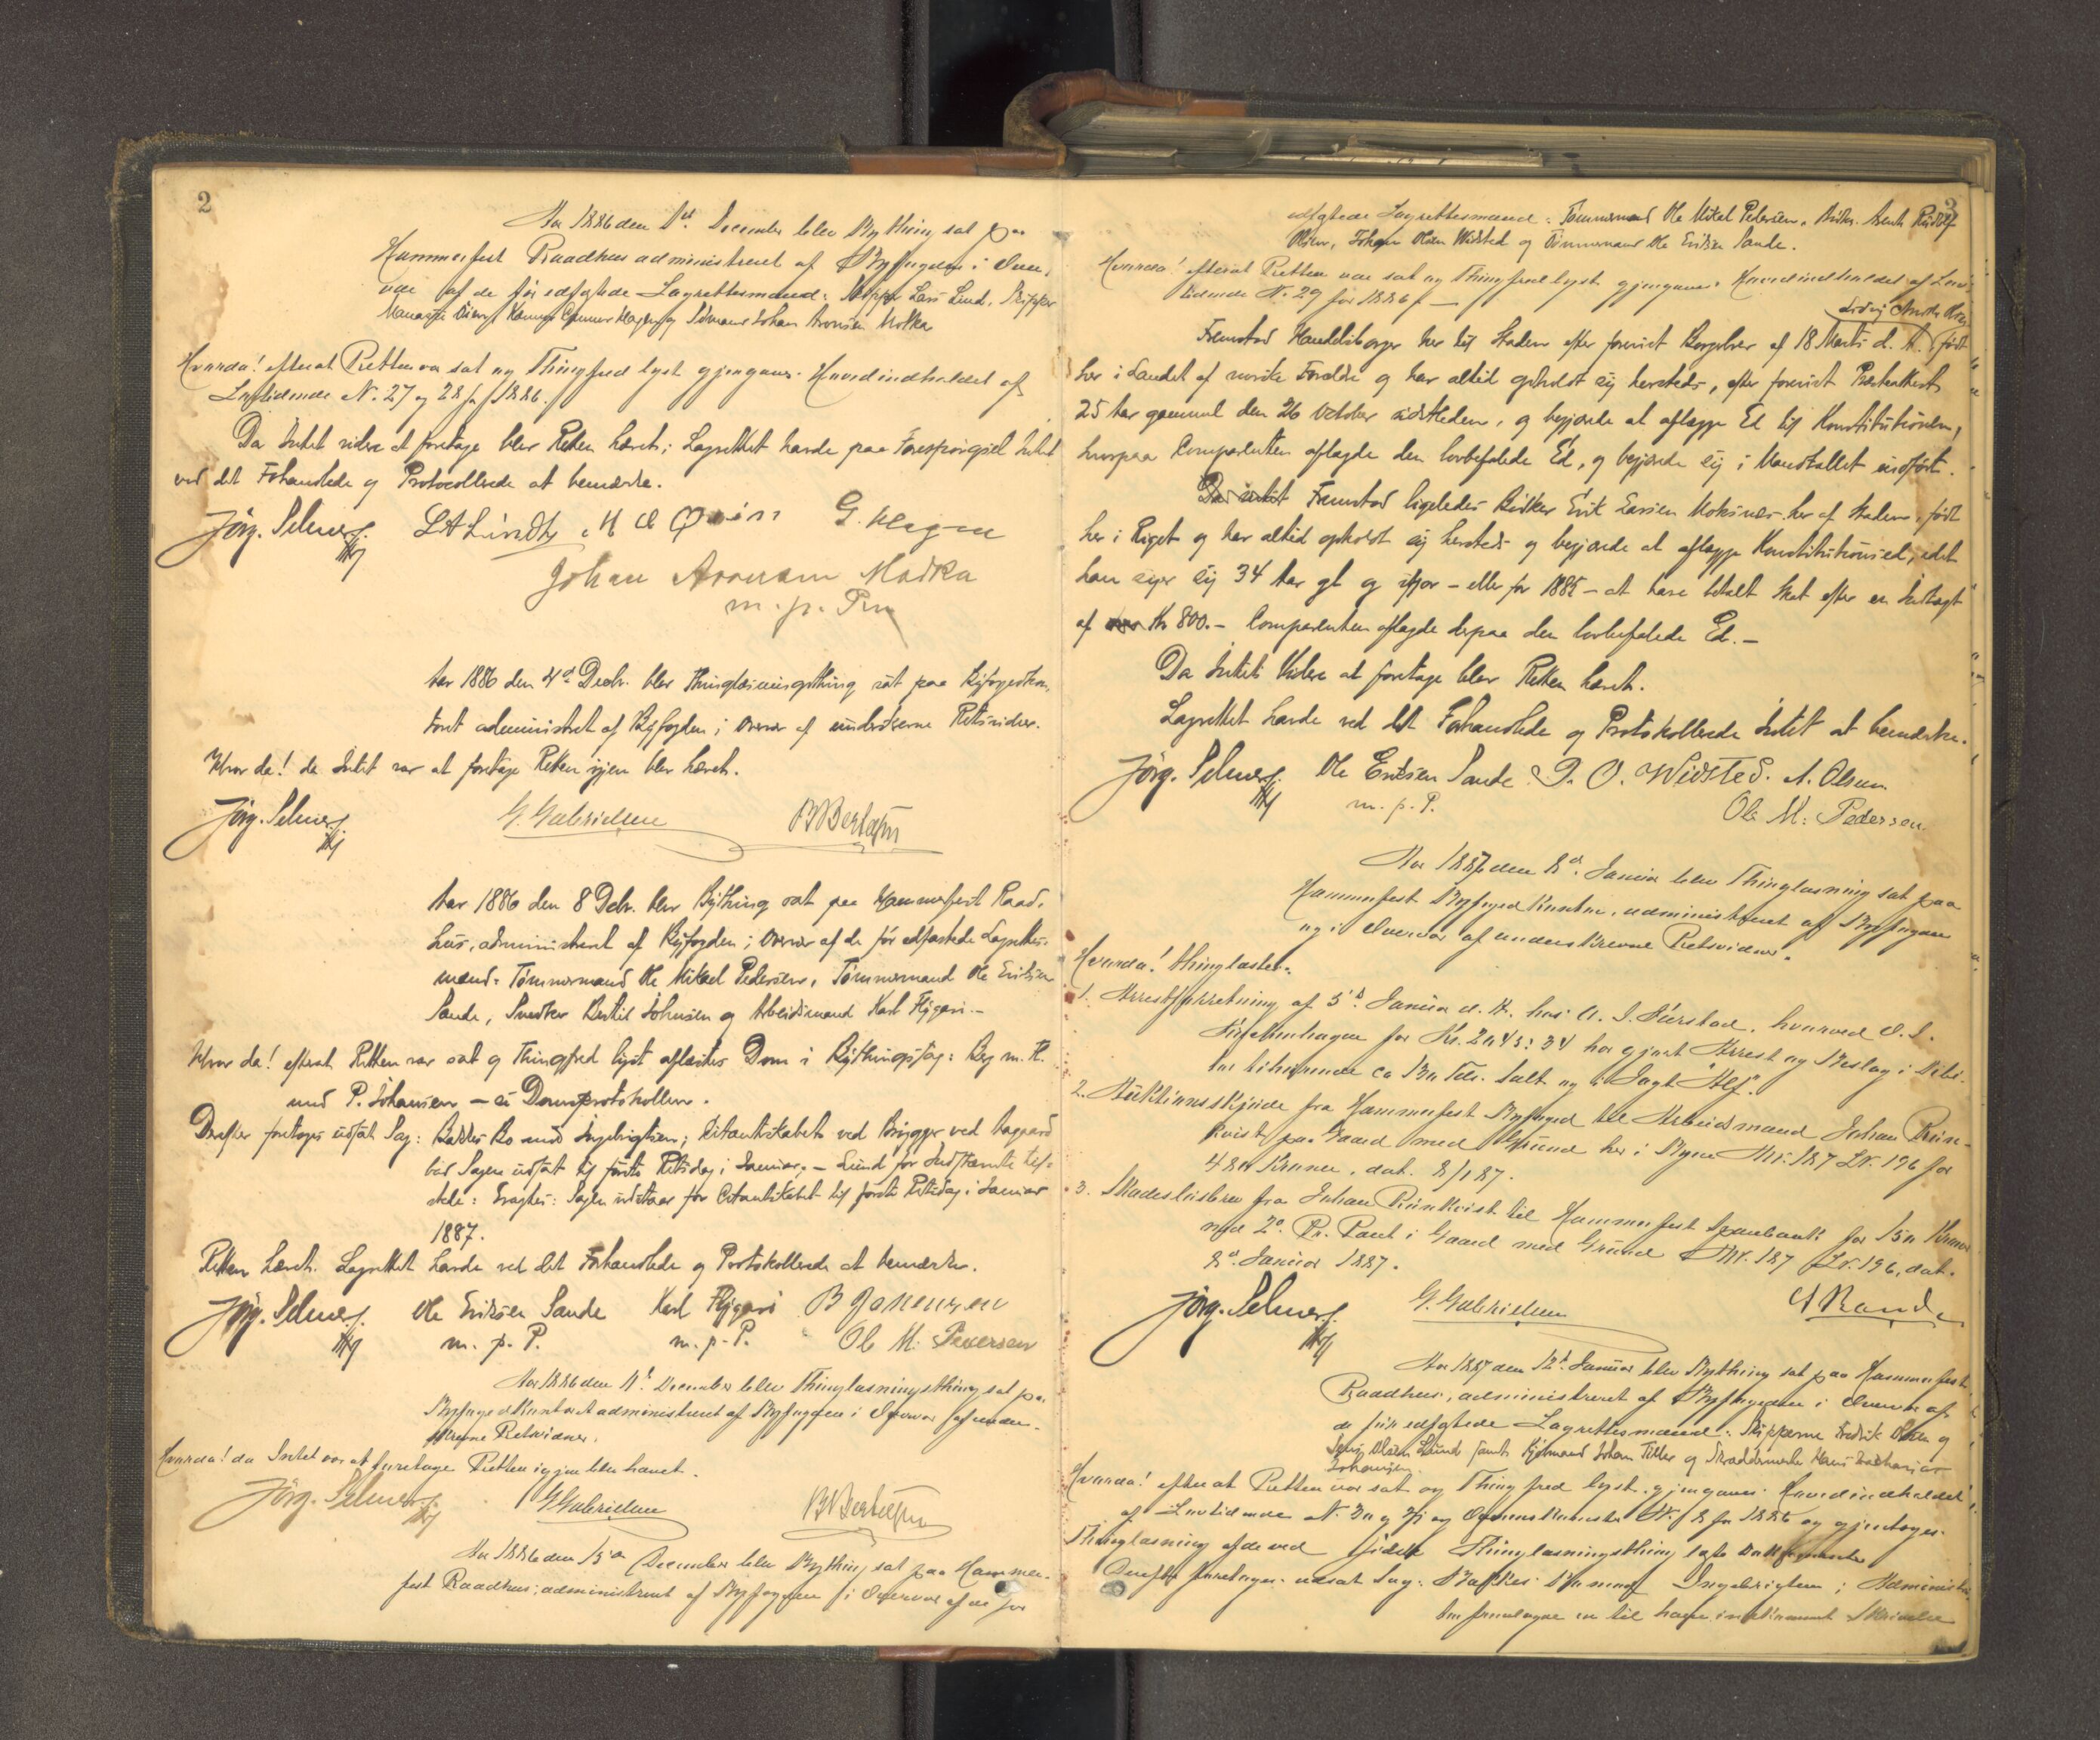 2
Aar 1886 den 1st December blev Bything sat paa
Hammerfest Raadhus administreret af Byfogden i Over-
vær af de før edfæstede Lagrettesmænd: Skipper Lars Lind, Skipper
Johan Aronsen Modka
Hvorda! efterat Retten var sat og Thingfred lyst gjengaves Hovedindholdet af
Lovtidende No. 27 og 28 for 1886.
Da Intet videre at foretage blev Retten hævet; Lagrettet havde paa Forespørgsel Intet
ved det Forhandlede og Protocollerede at bemærke.
Jörg. Selmer
G. Hagen
Johan Aronsen Modka
m. p. P.
Aar 1886 den 4de Decbr. blev Thinglæsningsthing sat paa Byfogedkon-
toret administreret af Byfogden i Overvær af underskrevne Retsvidner.
Hvor da! da Intet var at foretage Retten igjen blev hævet.
Jörg. Selmer
G. Gabrielsen
Aar 1886 den 8 Decbr. blev Bything sat paa Hammerfest Raad-
hus, administreret af Byfogden i Overvær af de før edfæstede Lagrettes-
mænd: Tømmermand Ole Mikal Pedersen, Tømmermand Ole Eriksen
Sande, Snedker Bertil Johnsen og Arbeidsmand Karl Flygari.-
Hvor da! efterat Retten var sat og Thingfred lyst aflæstes Dom i Bythingssag:
mod P. Johansen – se Domsprotokollen.
Derefter foretoges udsat Sag: Bo mod Ingebrigtsen; Citantskabet ved Brygger ved Aagaard
bad Sagen udsat til første Retsdag i Januar. – Lund for Indstævnte til-
stede: Eragtes: Sagen udstaar for Citantskabet til første Retsdag i Januar
1887.
Retten hævet. Lagrettet havde ved det Forhandlede og Protokollerede at bemærke.
Jörg. Selmer Ole Eriksen Sande Karl Flygari B Johnsen
m. p. P. m. p. P. Ole M. Pedersen
Aar 1886 den 11te December blev Thinglæsningsthing sat paa
Byfogedkontoret administreret af Byfogden i Overvær af under-
skrevne Retsvidner.
Hvorda! da Intet var at foretage Retten igjen blev hævet.
Jörg. Selmer
G Gabrielsen
Aar 1886 den 15de December blev Bything sat paa Hammer-
fest Raadhus; administreret af Byfogden i Overvær af de før
3
edfæstede Lagrettesmænd: Tømmermand Ole Mikal Pedersen,
Olsen, Johan Olsen Widsted og Tømmermand Ole Eriksen Sande.
Hvorda! efterat Retten var sat og Thingfred lyst gjengaves Hovedindholdet af Lov-
tidende No. 29 for 1886.
Fremstod Handelsborger her til Staden efter forevist Borgerbrev af 18 Marts d. A. født
her i Landet af norske Forældre og har altid opholdt sig hersteds, efter forevist Præsteattest
25 Aar gammel den 26 October sidstleden, og begjærede at aflægge Ed til Konstitutionen,
hvorpaa Comparenten aflagde den lovbefalede Ed, og begjærede sig i Mandtallet indført.
Da intet Fremstod ligeledes Bødker Erik Larsen Moksnæs her af Staden, født
her i Riget og har altid opholdt sig hersteds og begjærede at aflægge Konstitutionsed, idet
han siger sig 34 Aar gl. og ifjor – eller for 1885 – at have betalt Skat efter en Indtægt
af Kr 800.- Comparenten aflagde derpaa den lovbefalede Ed.–
Da Intet Videre at foretage blev Retten hævet.
Lagrettet havde ved det Forhandlede og Protokollerede Intet at bemærke.
Jörg. Selmer Ole Eriksen Sande J. O. Widsted. A. Olsen
m. p. P. Ole M: Pedersen
Aar 1887 den 8de Januar blev Thinglæsning sat paa
Hammerfest Byfogedkontor, administreret af Byfogden
og i Overvær af underskrevne Retsvidner.
Hvorda! thinglæstes:
1. Arrestforretning af 5te Januar d. A. hos hvorved
for Kr. 2043: 34 har gjort Arrest og Beslag i
tilhørende ca Tdr. Salt og i Jagt "Alf".
2. Auktionsskjøde fra Hammerfest Byfoged til Arbeidsmand Johan Rön-
kvist paa Gaard med Grund her i Byen Mt. 187 Lr. 196 for
480 Kroner, dat. 8/1 87.
3. Skadesløsbrev fra Johan Rönkvist til Hammerfest Sparebank for 150 Kroner
med 2den Pr. Pant i Gaard med Grund Mt. 187 Lr. 196, dat.
8de Januar 1887.
Jörg. Selmer
G. Gabrielsen
Aar 1887 den 12te Januar blev Bything sat paa Hammerfest
Raadhus, administreret af Byfogden i Overvær af
de før edfæstede Lagrettesmænd: Skipperne Fredrik Olsen og
Olsen Lund samt Kjøbmand Johan Tiller og Skræddermester Hans Zacharias
Johansen.
Hvorda! efterat Retten var sat og Thingfred lyst gjengaves Hovedindholdet
af Lovtidende No. 30 og 31 for 1886 og gjentoges
Thinglæsning af de ved sidste Thinglæsningsthing læste Dokumenter
Derefter foretoges udsat Sag: Bo mod Ingebrigtsen;